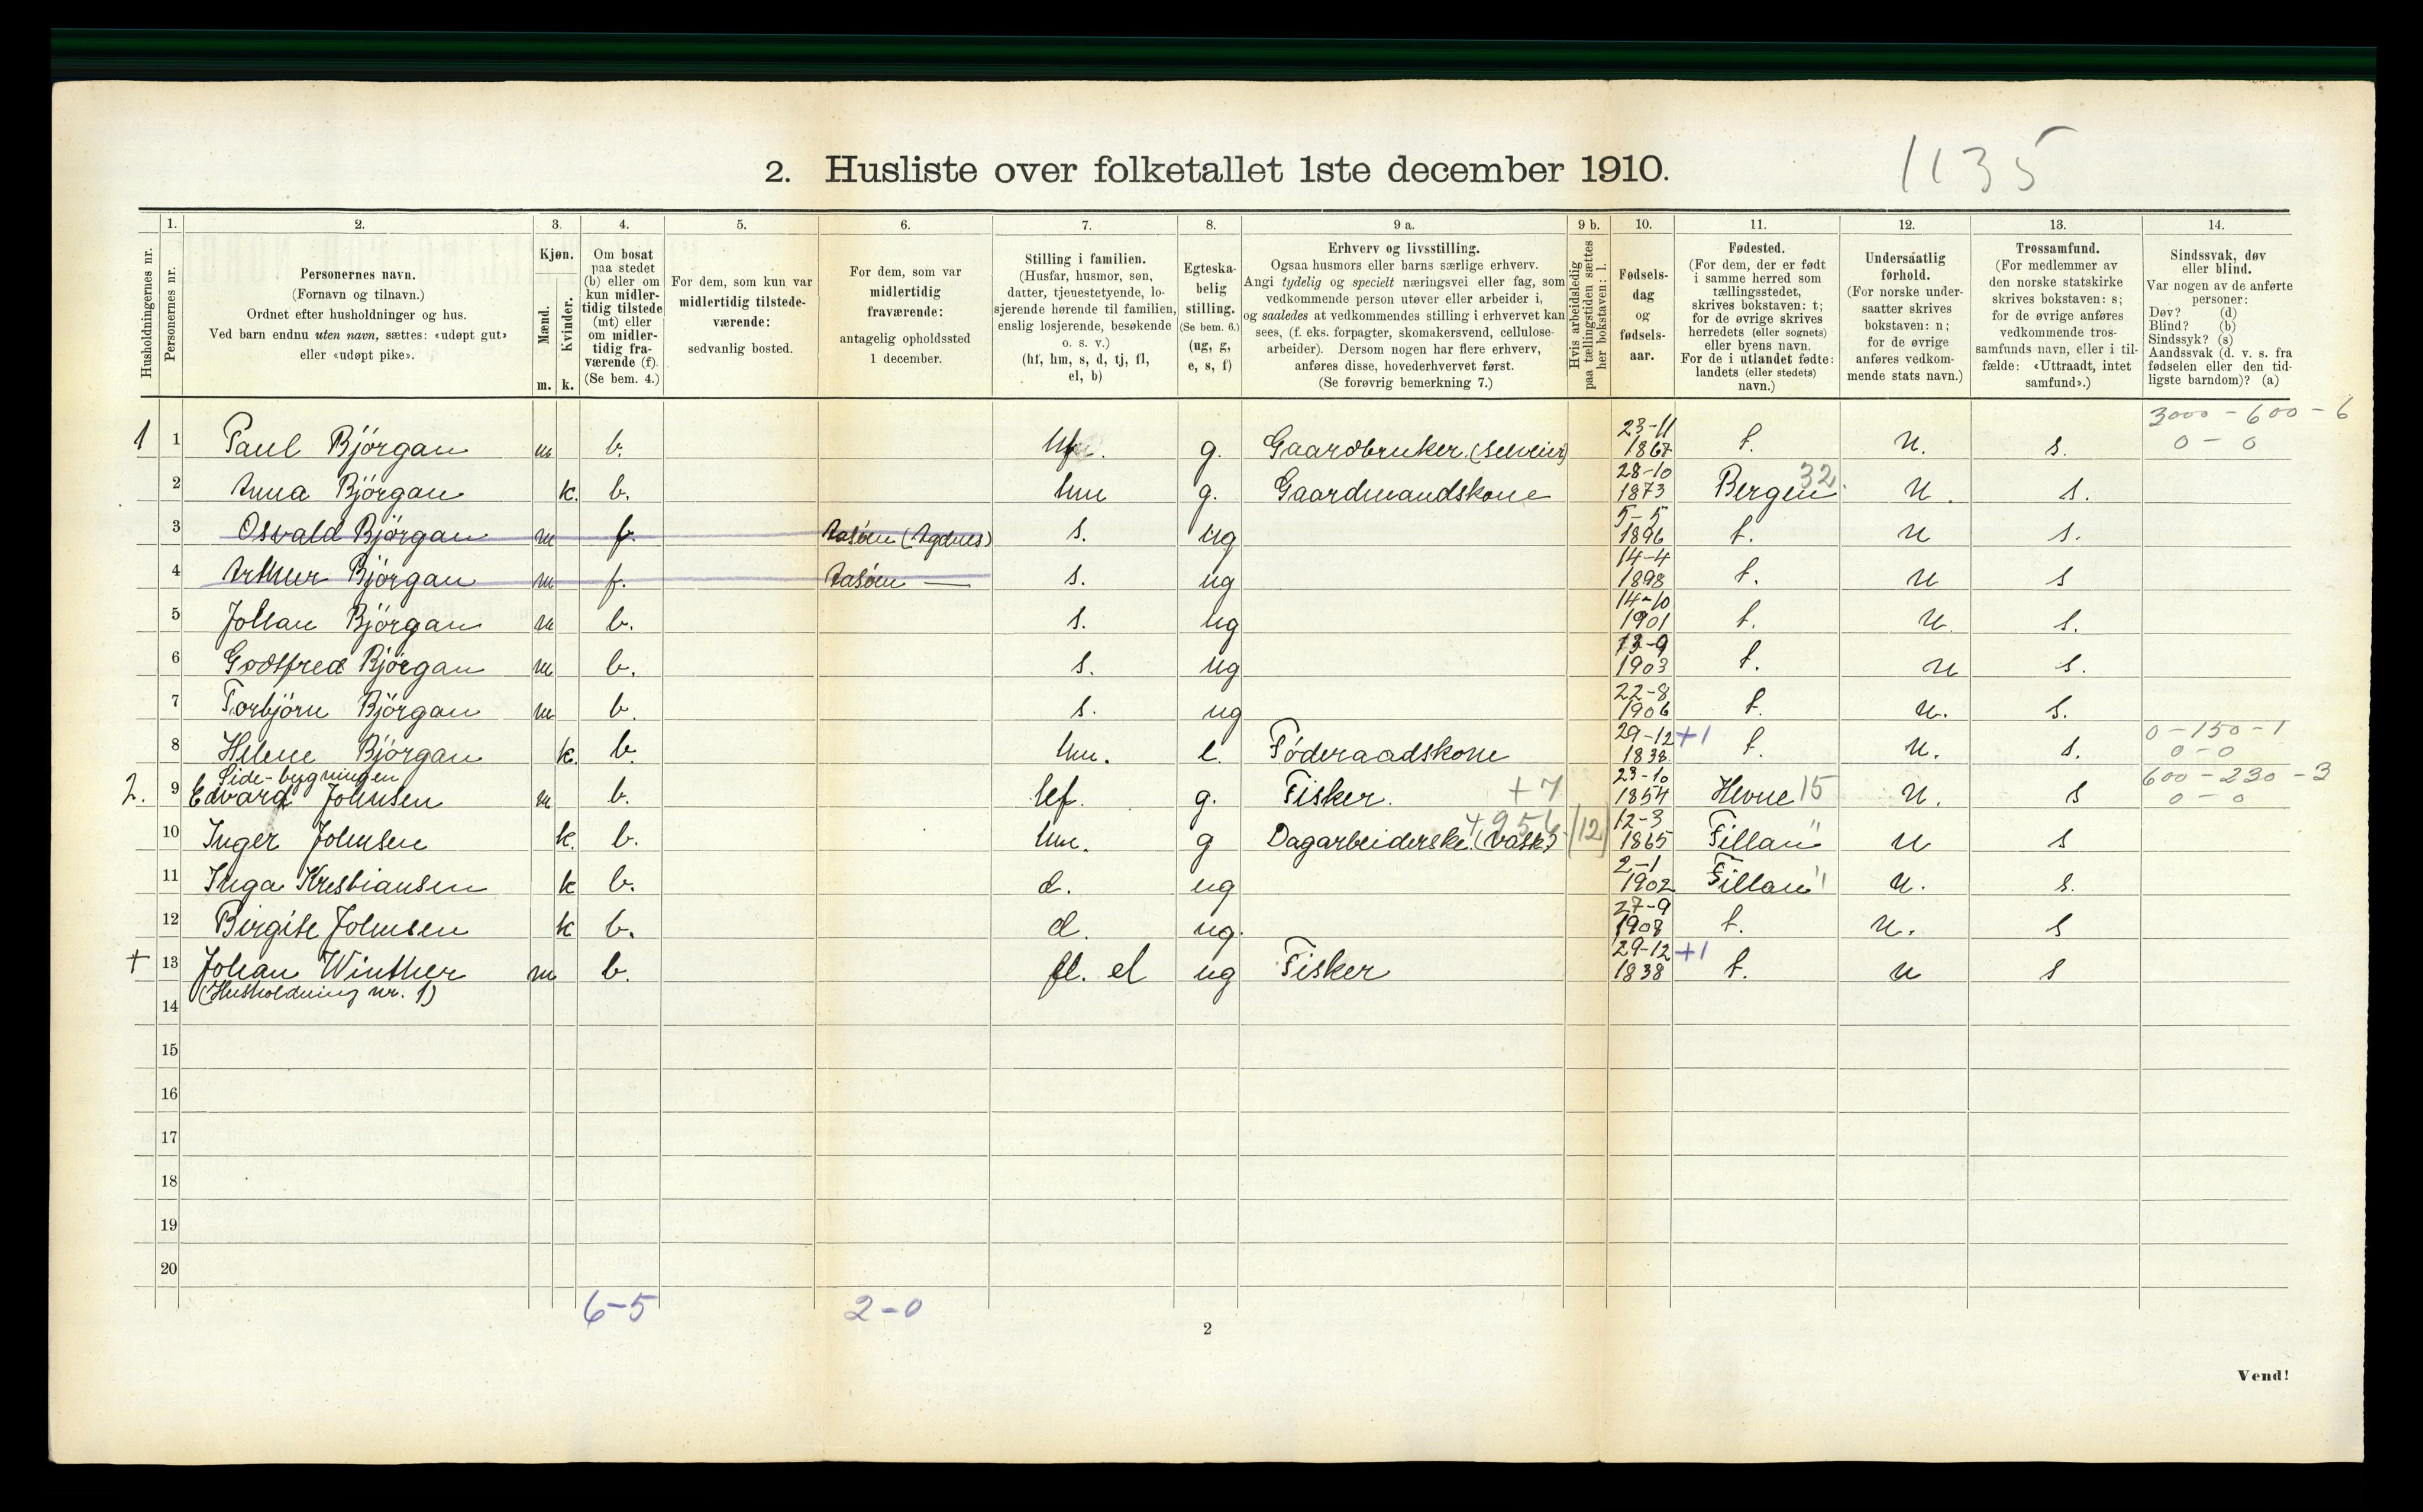 2. Husliste over folketallet 1ste december 1910.
1135
Husholdningernes nr.
1.
Personernes nr.
2.
Personernes navn.
(Fornavn og tilnavn.)
Ordnet efter husholdninger og hus.
Ved barn endnu uten navn, sættes: «udøpt gut»
eller «udøpt pike».
3.
Kjøn.
Mænd.
Kvinder.
m. k.
4.
Om bosat
paa stedet
(b) eller om
kun midler-
tidig tilstede
(mt) eller
om midler-
tidig fra-
værende (f).
(Se bem. 4.)
5.
For dem, som kun var
midlertidig tilstede-
værende:
sedvanlig bosted.
6.
For dem, som var
midlertidig
fraværende:
antagelig opholdssted
1 december.
7.
Stilling i familien.
(Husfar, husmor, søn,
datter, tjenestetyende, lo-
sjerende hørende til familien,
enslig losjerende, besøkende
o. s. v.)
(hf, hm, s, d, tj, fl,
el, b)
8.
Egteska-
belig
stilling.
(Se bem. 6.)
(ug, g,
e, s, f)
9 a.
Erhverv og livsstilling.
Ogsaa husmors eller barns særlige erhverv.
Angi tydelig og specielt næringsvei eller fag, som
vedkommende person utøver eller arbeider i,
og saaledes at vedkommendes stilling i erhvervet kan
sees, (f. eks. forpagter, skomakersvend, cellulose-
arbeider). Dersom nogen har flere erhverv,
anføres disse, hovederhvervet først.
(Se forøvrig bemerkning 7.)
9 b.
Hvis arbeidsledig
paa tællingstiden sættes
her bokstaven: l.
10.
Fødsels-
dag
og
fødsels-
aar.
11.
Fødested.
(For dem, der er født
i samme herred som
tællingsstedet,
skrives bokstaven: t;
for de øvrige skrives
herredets (eller sognets)
eller byens navn.
For de i utlandet fødte:
landets (eller stedets)
navn.)
12.
Undersaatlig
forhold.
(For norske under-
saatter skrives
bokstaven: n;
for de øvrige
anføres vedkom-
mende stats navn.)
13.
Trossamfund.
(For medlemmer av
den norske statskirke
skrives bokstaven: s;
for de øvrige anføres
vedkommende tros-
samfunds navn, eller i til-
fælde: «Uttraadt, intet
samfund».)
14.
Sindssvak, døv
eller blind.
Var nogen av de anførte
personer:
Døv? (d)
Blind? (b)
Sindssyk? (s)
Aandssvak (d. v. s. fra
fødselen eller den tid-
ligste barndom)? (a)
3000 - 600 - 6
1 1 Paul Bjørgan m b. hf. g. Gaardbruker. (selveier) 23-11 1868 t. n. s. 0 - 0
2 Anna Bjørgan k. b. hm g. Gaardmandskone 28-10 1873 Bergen 32. n. s.
3 Osvald Bjørgan m f. (Agdnes) s. ug 5-5 1896 t. n s.
4 Arthur Bjørgan m f. — s. ug 14-4 1898 t. n s
5 Johan Bjørgan m b. s. ug 14-10 1901 t. n. s.
6 Godtfred Bjørgan m b. s. ug 13-9 1903 t. n s.
7 Torbjørn Bjørgan m b. s. ug 22-8 1906 t. n. s.
8 Helene Bjørgan k. b. hm. e. Føderaadskone 29-12 1838 +1 t. n. s. 0-150-1 0-0
Side-bygningen
2. 9 Edvard Johnsen m b. hf. g. Fisker. +7 23-10 1854 Hevne 15 n. s 600-230-3 0-0
10 Inger Johnsen k. b. hm. g Dagarbeiderske (vask) (12) 12-3 1865 Fillan " n s
11 Inga Kristiansen k b. d. ug 2-1 1902 Fillan " n. s.
12 Birgite Johnsen k b. d. ug. 27-9 1908 t. n. s
+ 13 Johan Winther m b. fl. el ug Fisker 29-12 1838 +1 t. n s
(Husholdning nr. 1)
14
15
16
17
18
19
20
6-5
2-0
2
Vend!